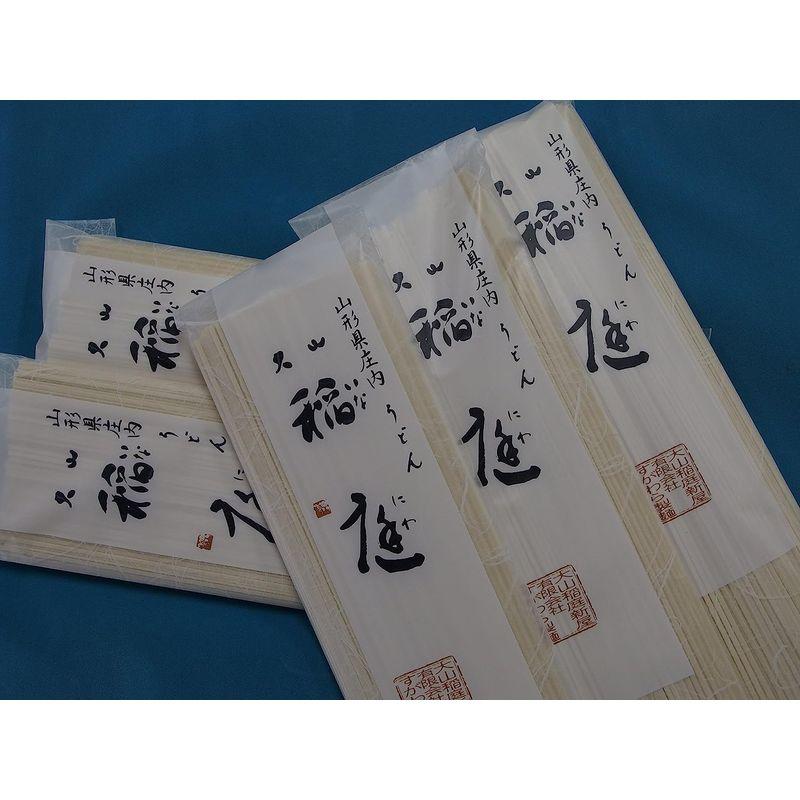 山形県庄内
大山
稲庭
いなにわ
うどん
大山稲庭新屋
有限会社
すがわら製麺
山形県庄内
大山
稲庭
いなにわ
うどん
大山稲庭新屋
有限会社
山形県庄内
大山
稲庭
いなにわ
うどん
大山稲庭
有限会社
すがわら
山形県庄内
大山
稲
いな
う
山形県庄内
大山
稲
いなに
うどん